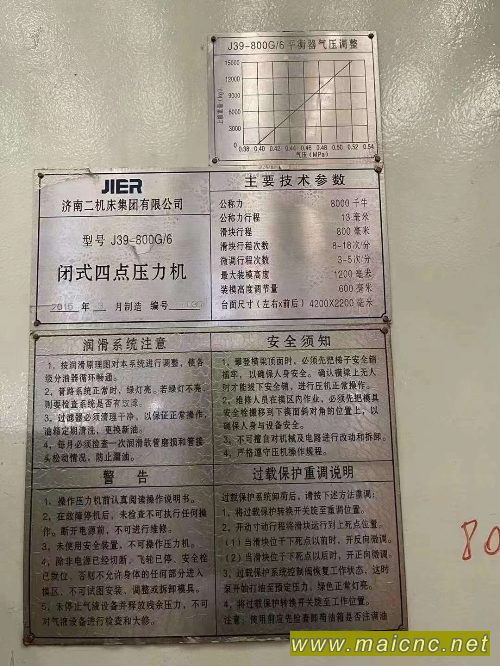 J39-800G/6平衡器气压调整
上模重量(kg)
15000
12000
9000
6000
3000
0.38 0.40 0.42 0.44 0.46 0.48 0.50 0.52 0.54
气压(MPa)
JIER
济南二机床集团有限公司
型号 J39-800G/6
闭式四点压力机
2015 年 月制造 编号
主要技术参数
公称力 8000 千牛
公称力行程 13 毫米
滑块行程 800 毫米
滑块行程次数 8-18次/分
微调行程次数 3-5次/分
最大装模高度 1200 毫米
装模高度调节量 600 毫米
台面尺寸(左右x前后) 4200X2200 毫米
润滑系统注意
1、按润滑原理图对本系统进行调整,使各
级分油器循环畅通。
2、管路系统正常时,绿灯亮。若绿灯不亮
则要检查系统是否有故障。
3、过滤器必须清理干净,以保证正常操作,
油箱定期清洗、更换新油。
4、每月必须检查一次润滑软管磨损和管接
头松动情况,防止漏油。
安全须知
1、攀登横梁顶面时,必须先把梯子安全销
插牢,以确保人身安全。确认横梁上无人
时才能拔下安全销,进行压机正常操作。
2、维修人员在模区内作业,必须先把模具
安全栓搬移到下模面斜对角的位置上,以
确保人身与设备安全。
3、不可擅自对机械及电路进行改动和拆卸。
4、严格遵守压机操作规程。
警告
1、操作压力机前认真阅读操作说明书。
2、在故障停机后,未检查不可执行任何操
作。断开电源前,不可进行维修。
3、未使用安全装置,不可操作压力机。
4、除非电源已经切断,飞轮已停、安全栓
已就位,否则不允许身体的任何部分进入
模区、不可试图安装、调整或拆卸模具。
5、未停止气液设备并释放残余压力,不可
对气液设备进行检查和大修。
过载保护重调说明
过载保护系统卸荷后,请按下述方法重调:
1、将过载保护转换开关旋至重调位置。
2、开动寸动行程将滑块运行到上死点位置。
(1)当滑块位于下死点以前时,开反向微调。
(2)当滑块位于下死点以后时,开正向微调。
3、过载保护系统控制阀恢复工作状态,这时
泵开始打油至预定压力,绿色正常灯亮。
4、将过载保护转换开关旋至工作位置。
注意:使用前应先检查卸荷油箱是否注满油
80
www.maicnc.net